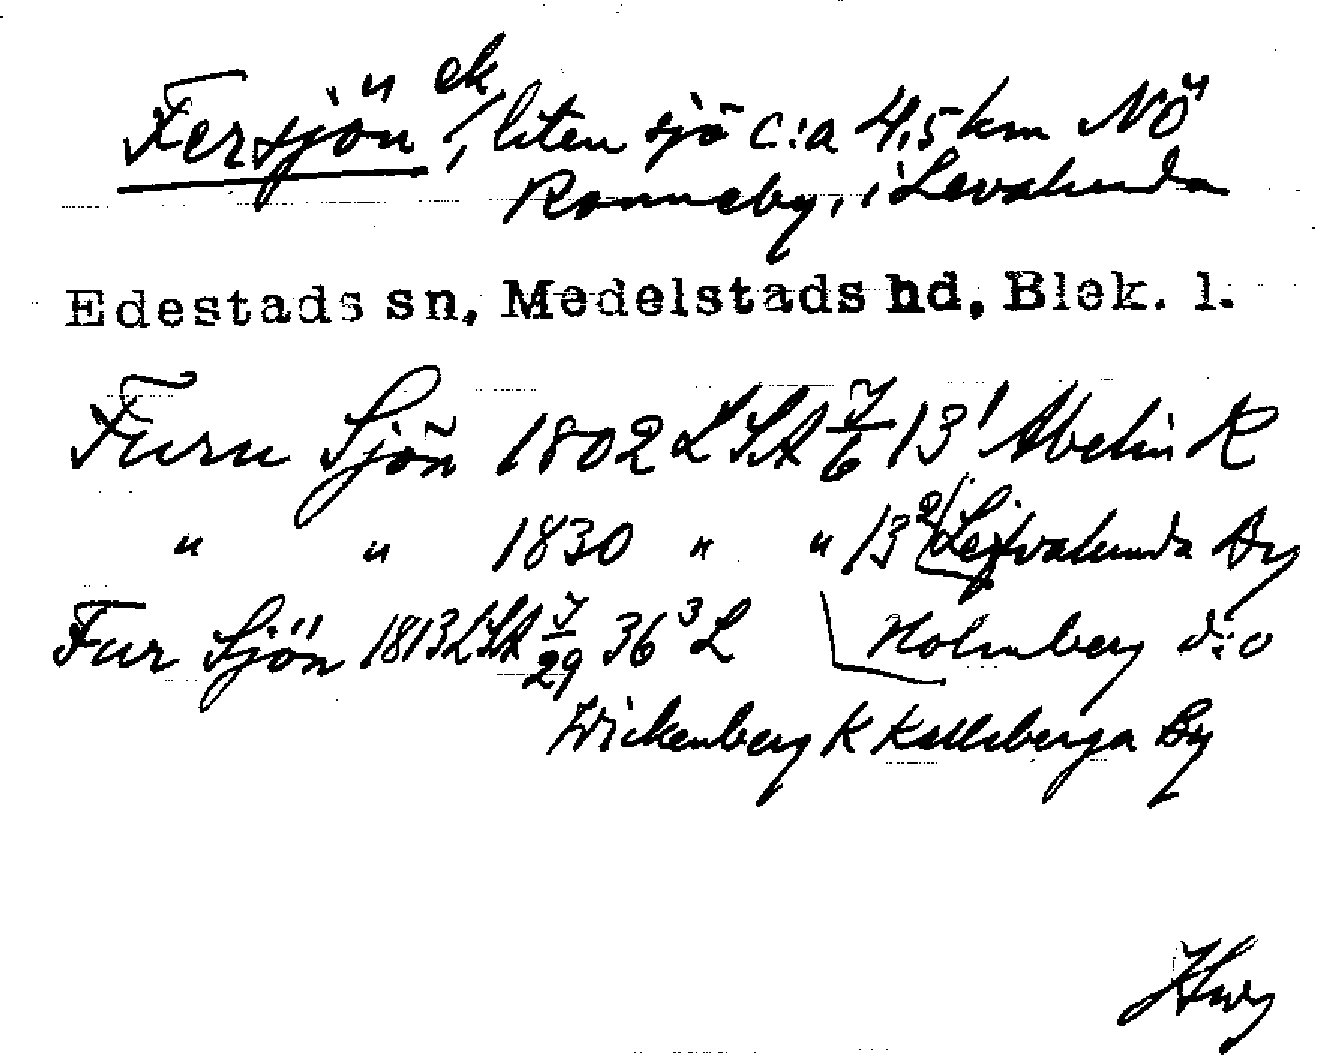 Fersjön ek, liten sjö c:a 4,5 km NÖ
Ronneby, i Levalunda
Edestads sn, Medelstads hd, Blek. l.
Furu Sjön 1802 LSA 7/6 13¹ Abelin K
" " 1830 " " 13² Levalunda By
Fur Sjön 1813 LSA 7/29 36³ L Holmberg d:o
Wickenberg K Kalleberga By